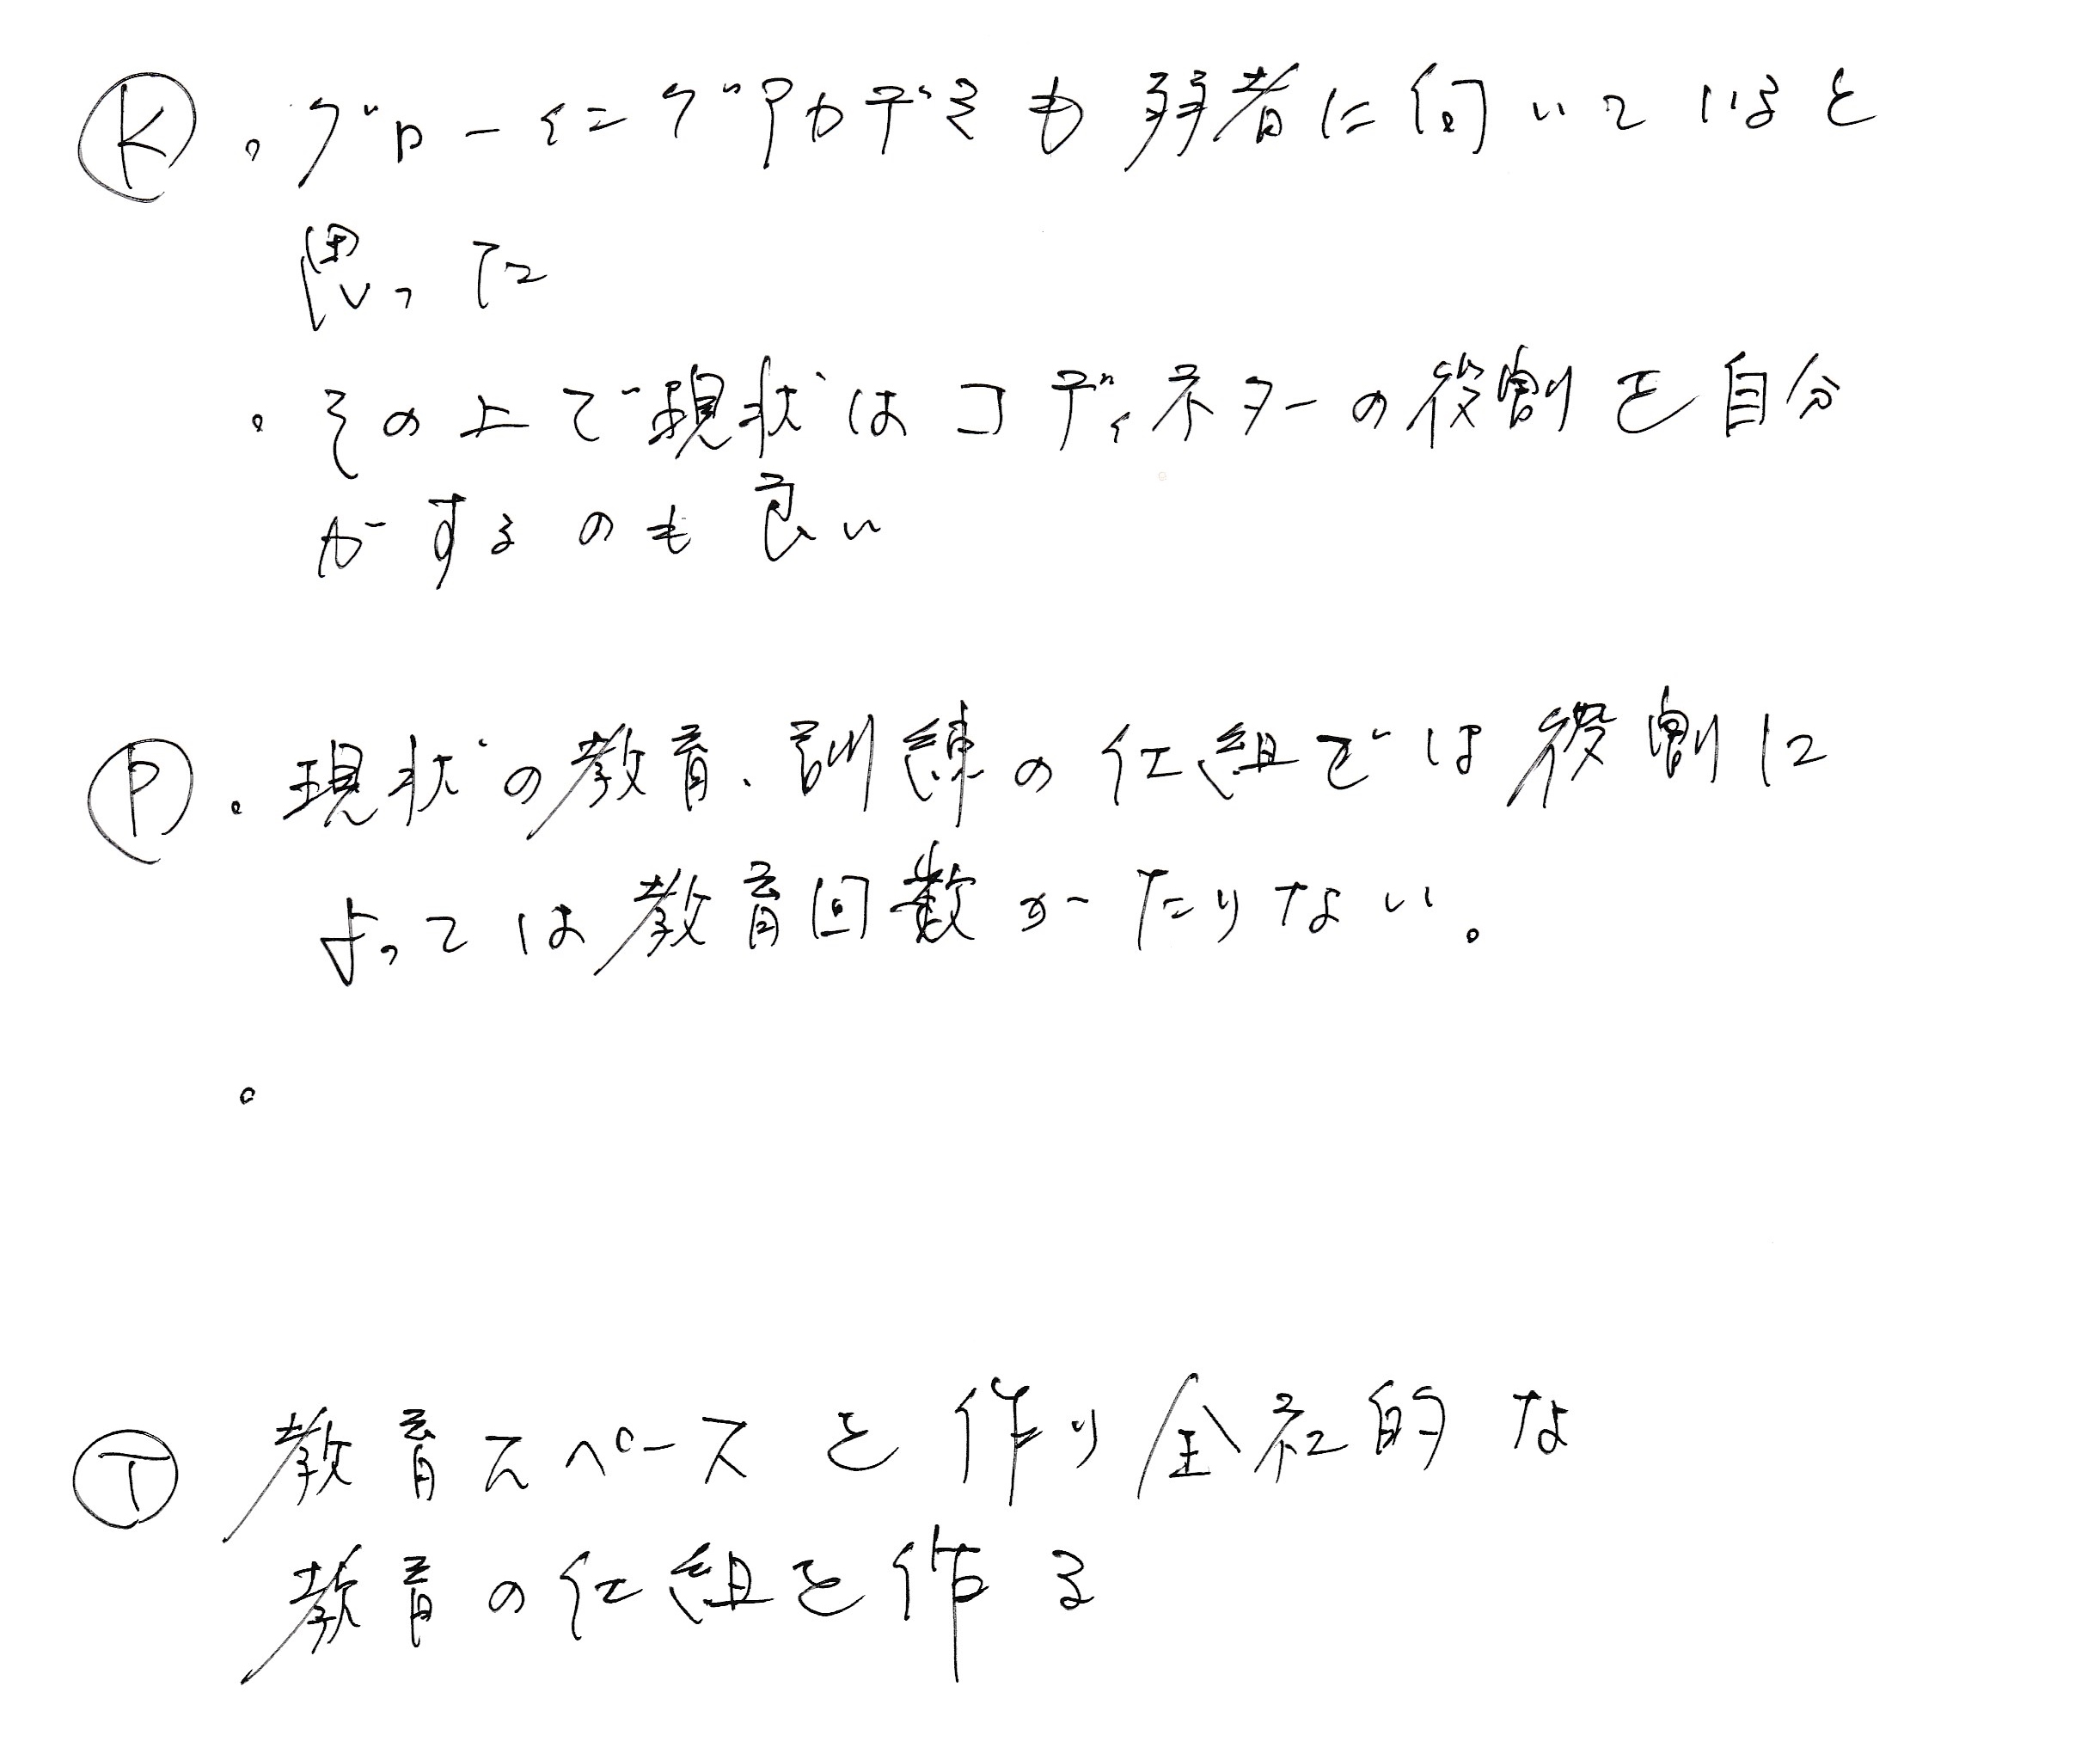 Ⓚ ・グローイングアカデミも弱者に向いていると
思った
・その上で現状はコディネターの役割を自分
がするのも良い
Ⓟ ・現状の教育、訓練の仕組では役割に
よっては教育回数がたりない。
・
Ⓣ 教育スペースを作り全社的な
教育の仕組を作る